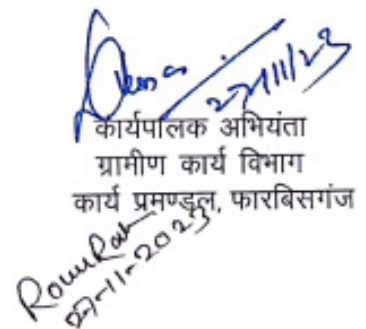 27/11/23
कार्यपालक अभियंता
ग्रामीण कार्य विभाग
कार्य प्रमण्डल, फारबिसगंज
27-11-2023